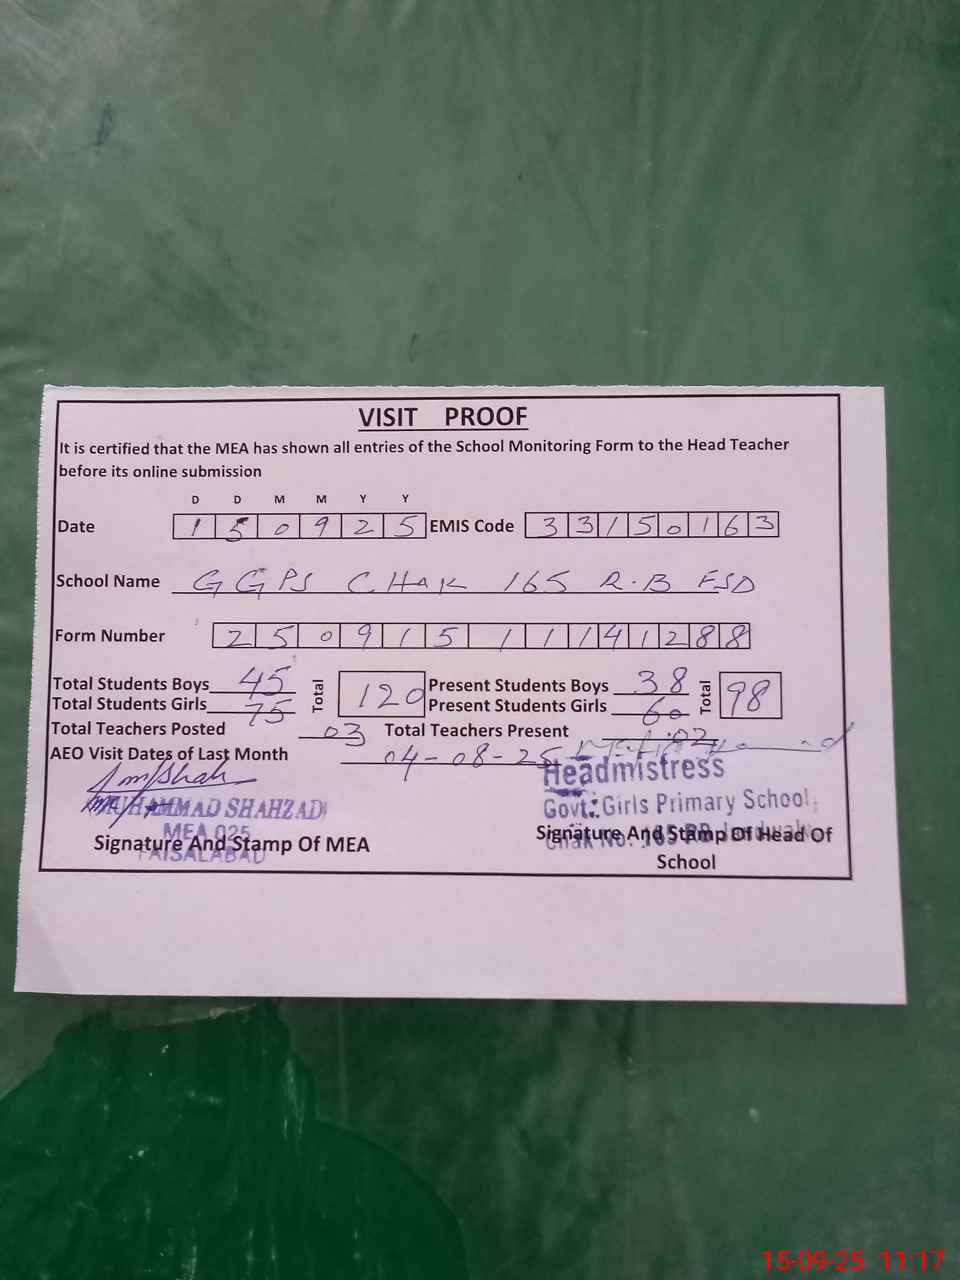 VISIT PROOF
It is certified that the MEA has shown all entries of the School Monitoring Form to the Head Teacher
before its online submission
D D M M Y Y
Date 1 5 0 9 2 5 EMIS Code 3 3 1 5 0 1 6 3
School Name GGPS CHAK 165 R.B FSD
Form Number 2 5 0 9 1 5 1 1 1 4 1 2 8 8
Total Students Boys 45 Total 120 Present Students Boys 38 Total 98
Total Students Girls 75 Present Students Girls 60
Total Teachers Posted 03 Total Teachers Present 02
AEO Visit Dates of Last Month 04-08-25
Headmistress
MUHAMMAD SHAHZAD Govt: Girls Primary School
MEA 025 Chak No. 165 RB
Signature And Stamp Of MEA Signature And Stamp Of Head Of
FAISALABAD School
15-09-25 11:17